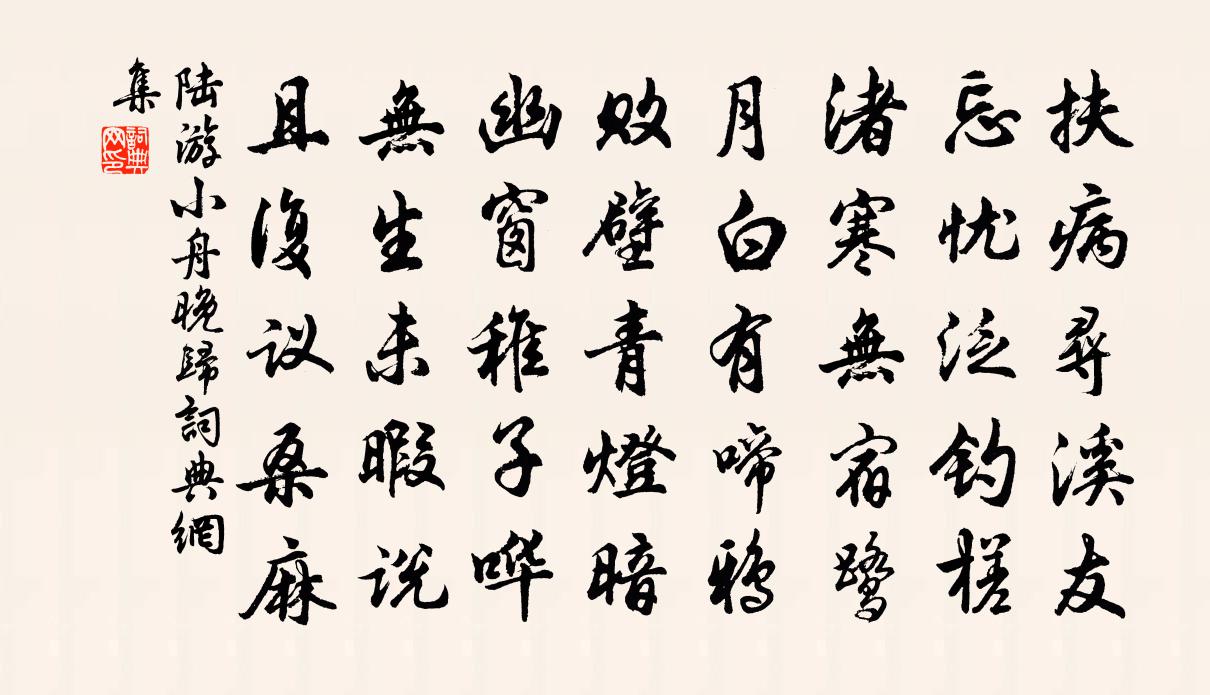 扶病尋溪友
忘忧泛钓槎
渚寒無宿鹭
月白有啼鴉
败壁青燈暗
幽窗稚子哗
無生未暇说
且復议桑麻
陆游小舟晚歸詞典網
集
詞典
网印